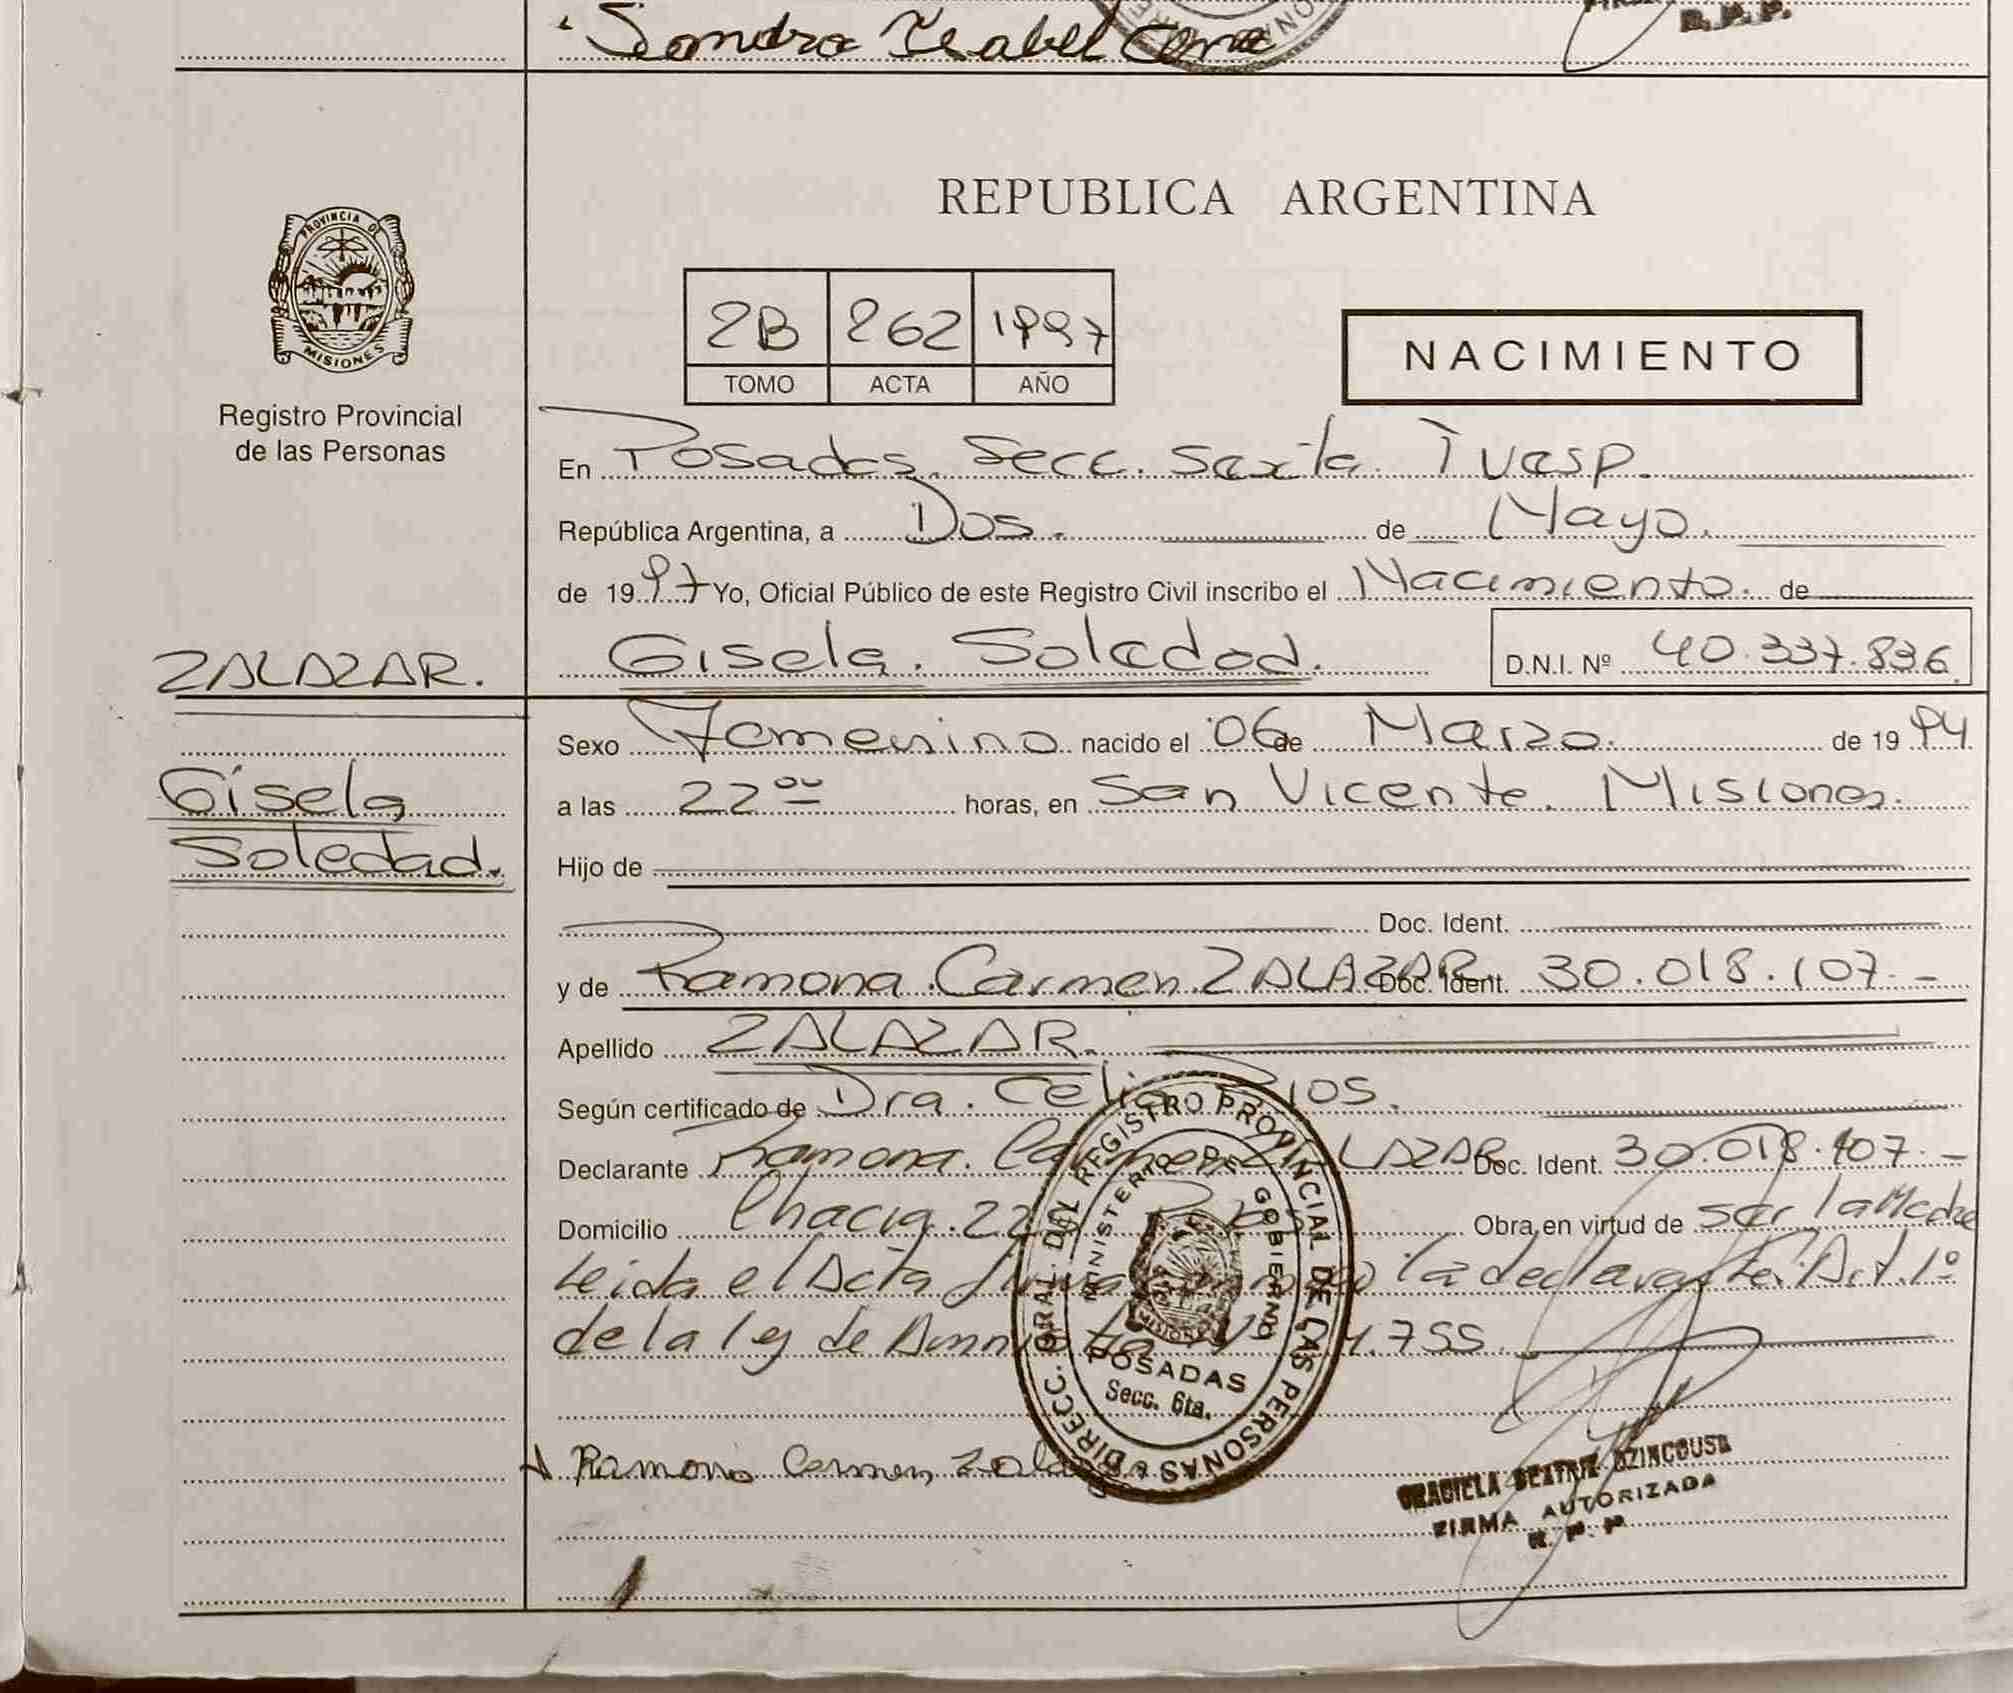 Sandra Isabel
R.P.P.
PROVINCIA DE
MISIONES
Registro Provincial
de las Personas
REPUBLICA ARGENTINA
2B 262 1997
TOMO ACTA AÑO
NACIMIENTO
En Posadas. Secc. Sexta
República Argentina, a Dos. de Mayo.
de 1997 Yo, Oficial Público de este Registro Civil inscribo el Nacimiento. de
ZALAZAR.
Gisela. Soledad. D.N.I. Nº 40.337.836
Sexo Femenino nacido el 06 de Marzo. de 1994
Gisela
Soledad.
a las 22 ºº horas, en San Vicente. Misiones.
Hijo de
Doc. Ident.
y de Ramona. Carmen ZALAZAR Doc. Ident. 30.018.107.-
Apellido ZALAZAR.
Según certificado de Dra. Celia Rios.
Declarante Ramona. Carmen ZALAZAR Doc. Ident. 30.018.107.-
Domicilio Chacra. 22 Obra en virtud de ser la Madre
Leida el Acta la declarante. Art. 1º
de la ley de Amnistia
Ramona Carmen Zalazar
DIRECC. GRAL. DEL REGISTRO PROVINCIAL DE LAS PERSONAS
MINISTERIO DE GOBIERNO
MISIONES
POSADAS
Secc. 6ta.
GRACIELA BEATRIZ DZINCOUSA
FIRMA AUTORIZADA
R. P. P.